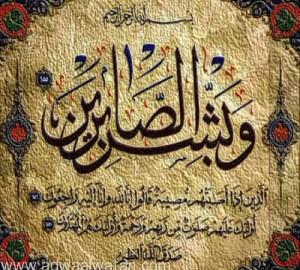 بسم الله الرحمن الرحيم
وبشر الصابرين ١٥٥
الذين إذا أصابتهم مصيبة قالوا إنا لله وإنا إليه راجعون ١٥٦
أولئك عليهم صلوات من ربهم ورحمة وأولئك هم المهتدون ١٥٧
صدق الله العظيم
www.adwaalwatan.com